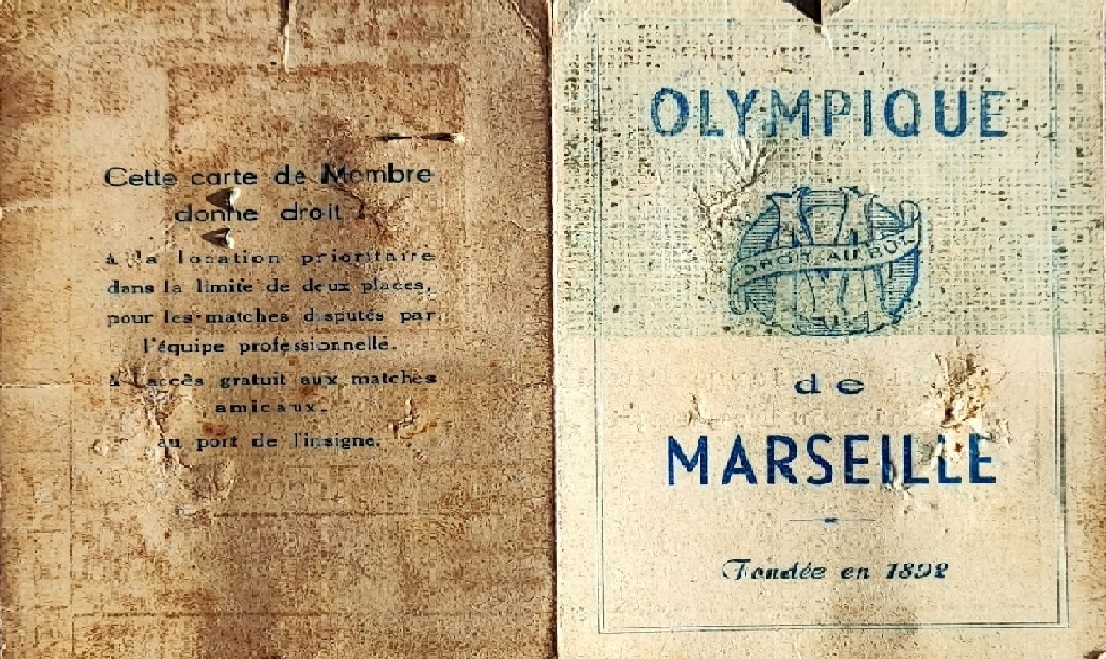 Cette carte de Membre
donne droit :
à la location prioritaire
dans la limite de deux places,
pour les matches disputés par
l'équipe professionnelle.
à l'accès gratuit aux matches
amicaux.
au port de l'insigne.
OLYMPIQUE
DROIT AU BUT
de
MARSEILLE
Fondée en 1892